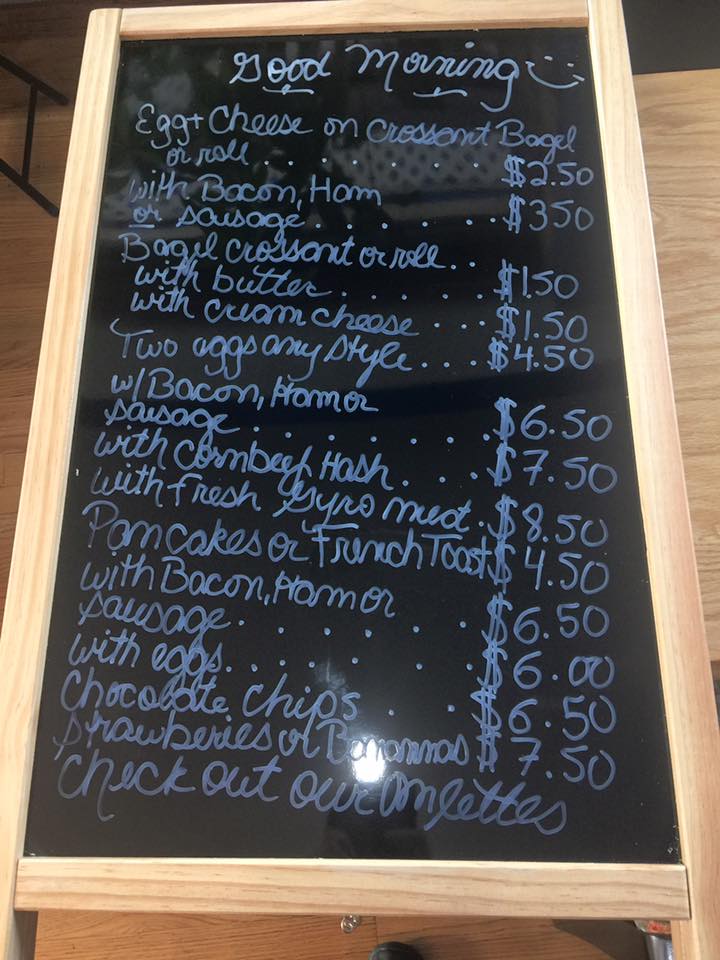 Good Morning
Egg + Cheese on Crossant Bagel
or roll . . . . . . . $2.50
with Bacon, Ham
or sausage . . . . . . $350
Bagel crossant or roll . .
with butter . . . . . $1.50
with cream cheese . . . $1.50
Two eggs any style . . . $4.50
w/ Bacon, Ham or
sausage . . . . . . . $6.50
with Cornbeef Hash . . . $7.50
with Fresh Gyro meat . $8.50
Pancakes or French Toast $4.50
with Bacon, Ham or
sausage . . . . . . $6.50
with eggs . . . . . . $6.00
Chocolate chips . . . $6.50
Strawberries or Banannas $7.50
Check out our Omlettes